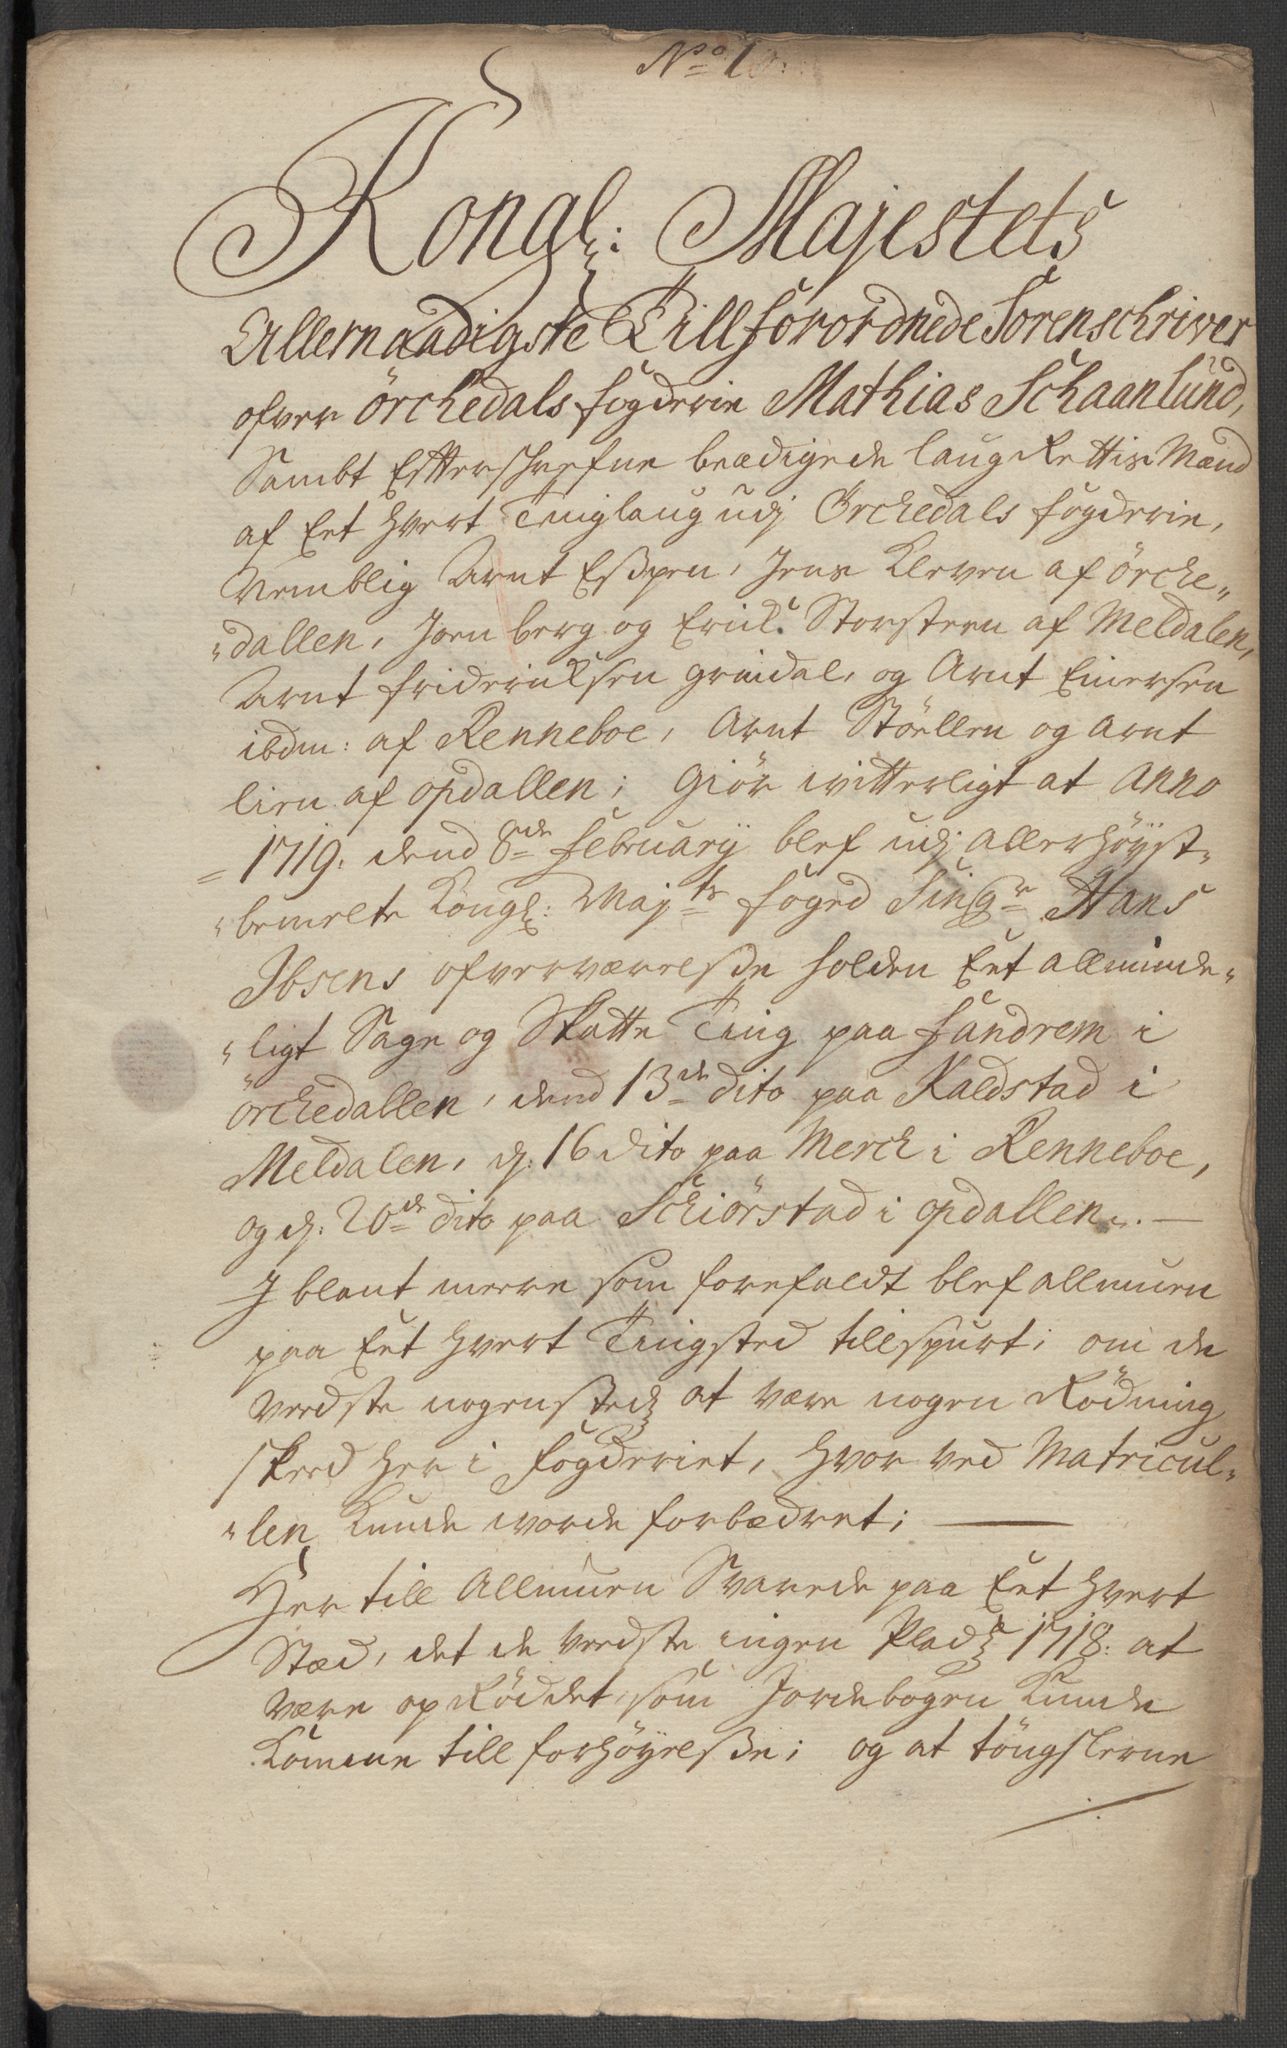 No 1
Kongl: Majestets
Allernaadigste Tillforordnede Sorenschriver
ofver örchedals fogderie Mathias Schaanlund,
Sambt Efterschrefne beædigede laugRettis Mænd
af Eet hvert Tinglaug udj Örchedals fogderie,
Nemblig Arnt Esspen, Jens Kleven af örche„
„dallen, Joen berg og Erick Storsteen af Meldalen,
Arnt friderichsen grindal, og Arnt Einersen
ibdm: af Renneboe, Arnt Stöellen og Arnt
lien af opdallen; Giör witterligt at Anno
1719. dend 8de February blef udj Allerhöyst„
„bemelte Kongl: Majts foged Singr Hans
Ibsens ofverværelsse holden Eet allminde„
„ligt Sage og Skatte Ting paa fandrem i
örchedallen, dend 13de dito paa Kaldstad i
Meldalen, d: 16 dito paa Merch i Renneboe,
og d: 20de dito paa Schiörstad i opdallen. —
I blant meere som forefaldt blef allmuen
paa Eet hvert Tingsted tillspurt; om de
veedste nogenstedz at være nogen Rödning
skeed her i fogderiet, hvor ved Matricul„
„len kunde worde forbædret; —
Her till Allmuen Svarede paa Eet hvert
Stæd, det de veedste ingen Pladz 1718. at
være opRöddet, som Jordebogen kunde
komme till forhöyelsse; og at töugslerne